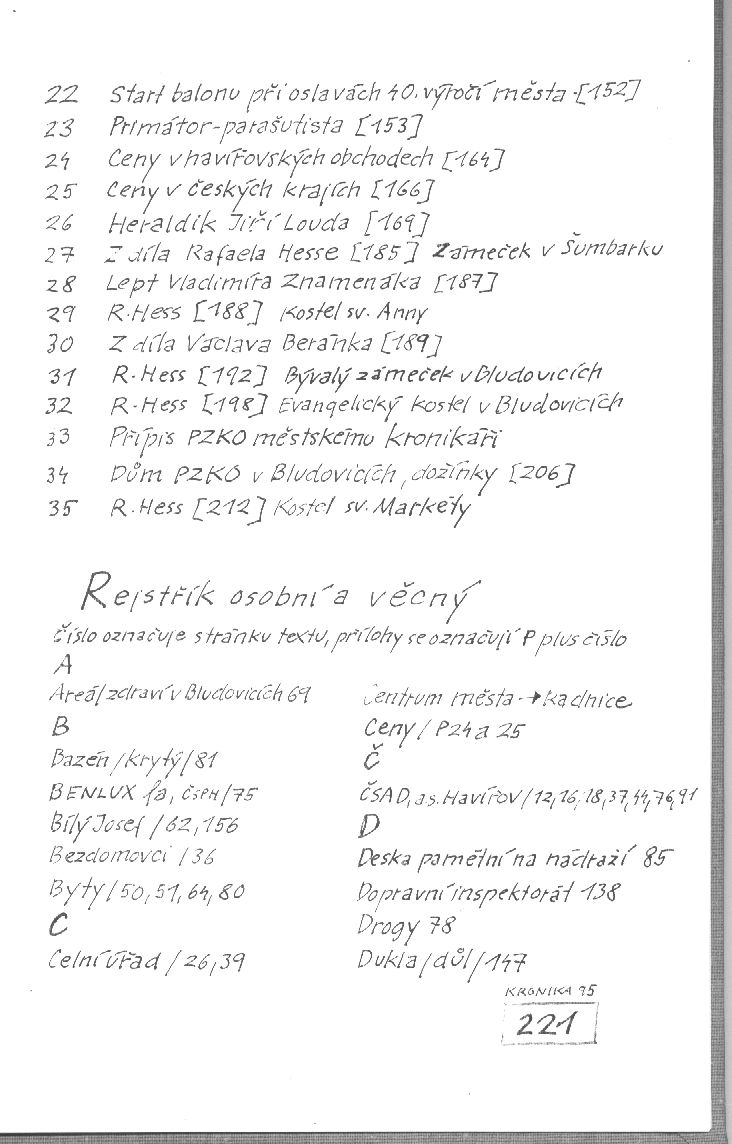 22 Start balonu při oslavách 40. výročí města [152]
23 Primátor-parašutista [153]
24 Ceny v havířovských obchodech [164]
25 Ceny v českých krajích [166]
26 Heraldik Jiří Louda [169]
27 Z díla Rafaela Hesse [185] Zámeček v Šumbarku
28 Lept Vladimíra Znamenáka [187]
29 R. Hess [188] Kostel sv. Anny
30 Z díla Václava Beránka [189]
31 R. Hess [192] Bývalý zámeček v Bludovicích
32 R. Hess [198] Evangelický kostel v Bludovicích
33 Přípis PZKO městskému kronikáři
34 Dům PZKO v Bludovicích, dožínky [206]
35 R. Hess [212] Kostel sv. Markéty
Rejstřík osobní a věcný
Číslo označuje stránku textu, přílohy se označují P plus číslo
A
Areál zdraví v Bludovicích 69
B
Bazén /krytý/ 81
BENLUX fa, ČSPH /75
Bílý Josef /62, 156
Bezdomovci /36
Byty /50, 51, 64, 80
C
Celní úřad /26, 39
Centrum města → Radnice
Ceny / P24 a 25
Č
ČSAD, a s. Havířov /12, 16, 18, 37, 44, 76, 91
D
Deska pamětní na nádraží 85
Dopravní inspektorát 138
Drogy 78
Dukla /důl/ 147
KRONIKA 95
221